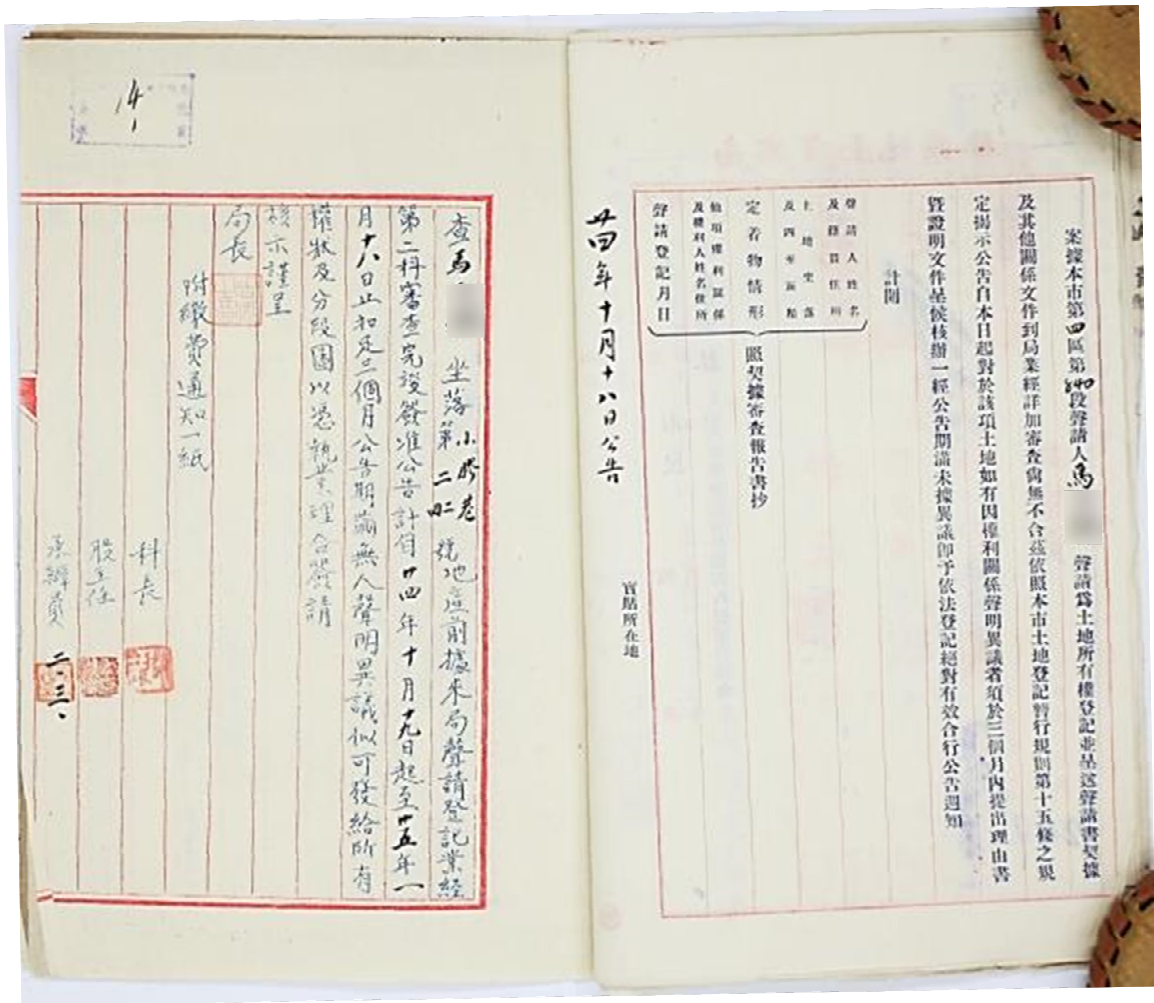 案據本市第四區第840段聲請人馬 聲請爲土地所有權登記並呈送聲請書契據
及其他關係文件到局業經詳加審查尙無不合茲依照本市土地登記暫行規則第十五條之規
定揭示公告自本日起對於該項土地如有因權利關係聲明異議者須於三個月內提出理由書
暨證明文件呈候核辦一經公告期滿未據異議卽予依法登記絕對有效合行公告週知
計開
聲請人姓名
及籍貫住所
土地坐落
及四至面積
定着物情形
他項權利關係
及權利人姓名住所
聲請登記月日
照契據審查報告書抄
廿四年十月十八日公告
實貼所在地
14
1
查馬 坐落小膠巷第二四二號地產前據來局聲請登記業經
第二科審查完竣發准公告計自廿四年十月十九日起至廿五年一
月十八日止扣足三個月公告期滿無人聲明異議似可發給所有
權狀及分段圖以憑執業理合簽請
核示謹呈
局長
附繳費通知一紙
科長
股主任
承辦員
二.三.